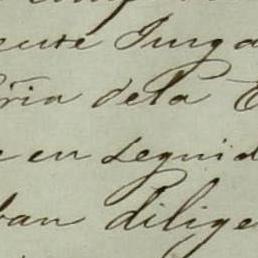 ente Juzga
ría dela E
e en seguid
ban dilige